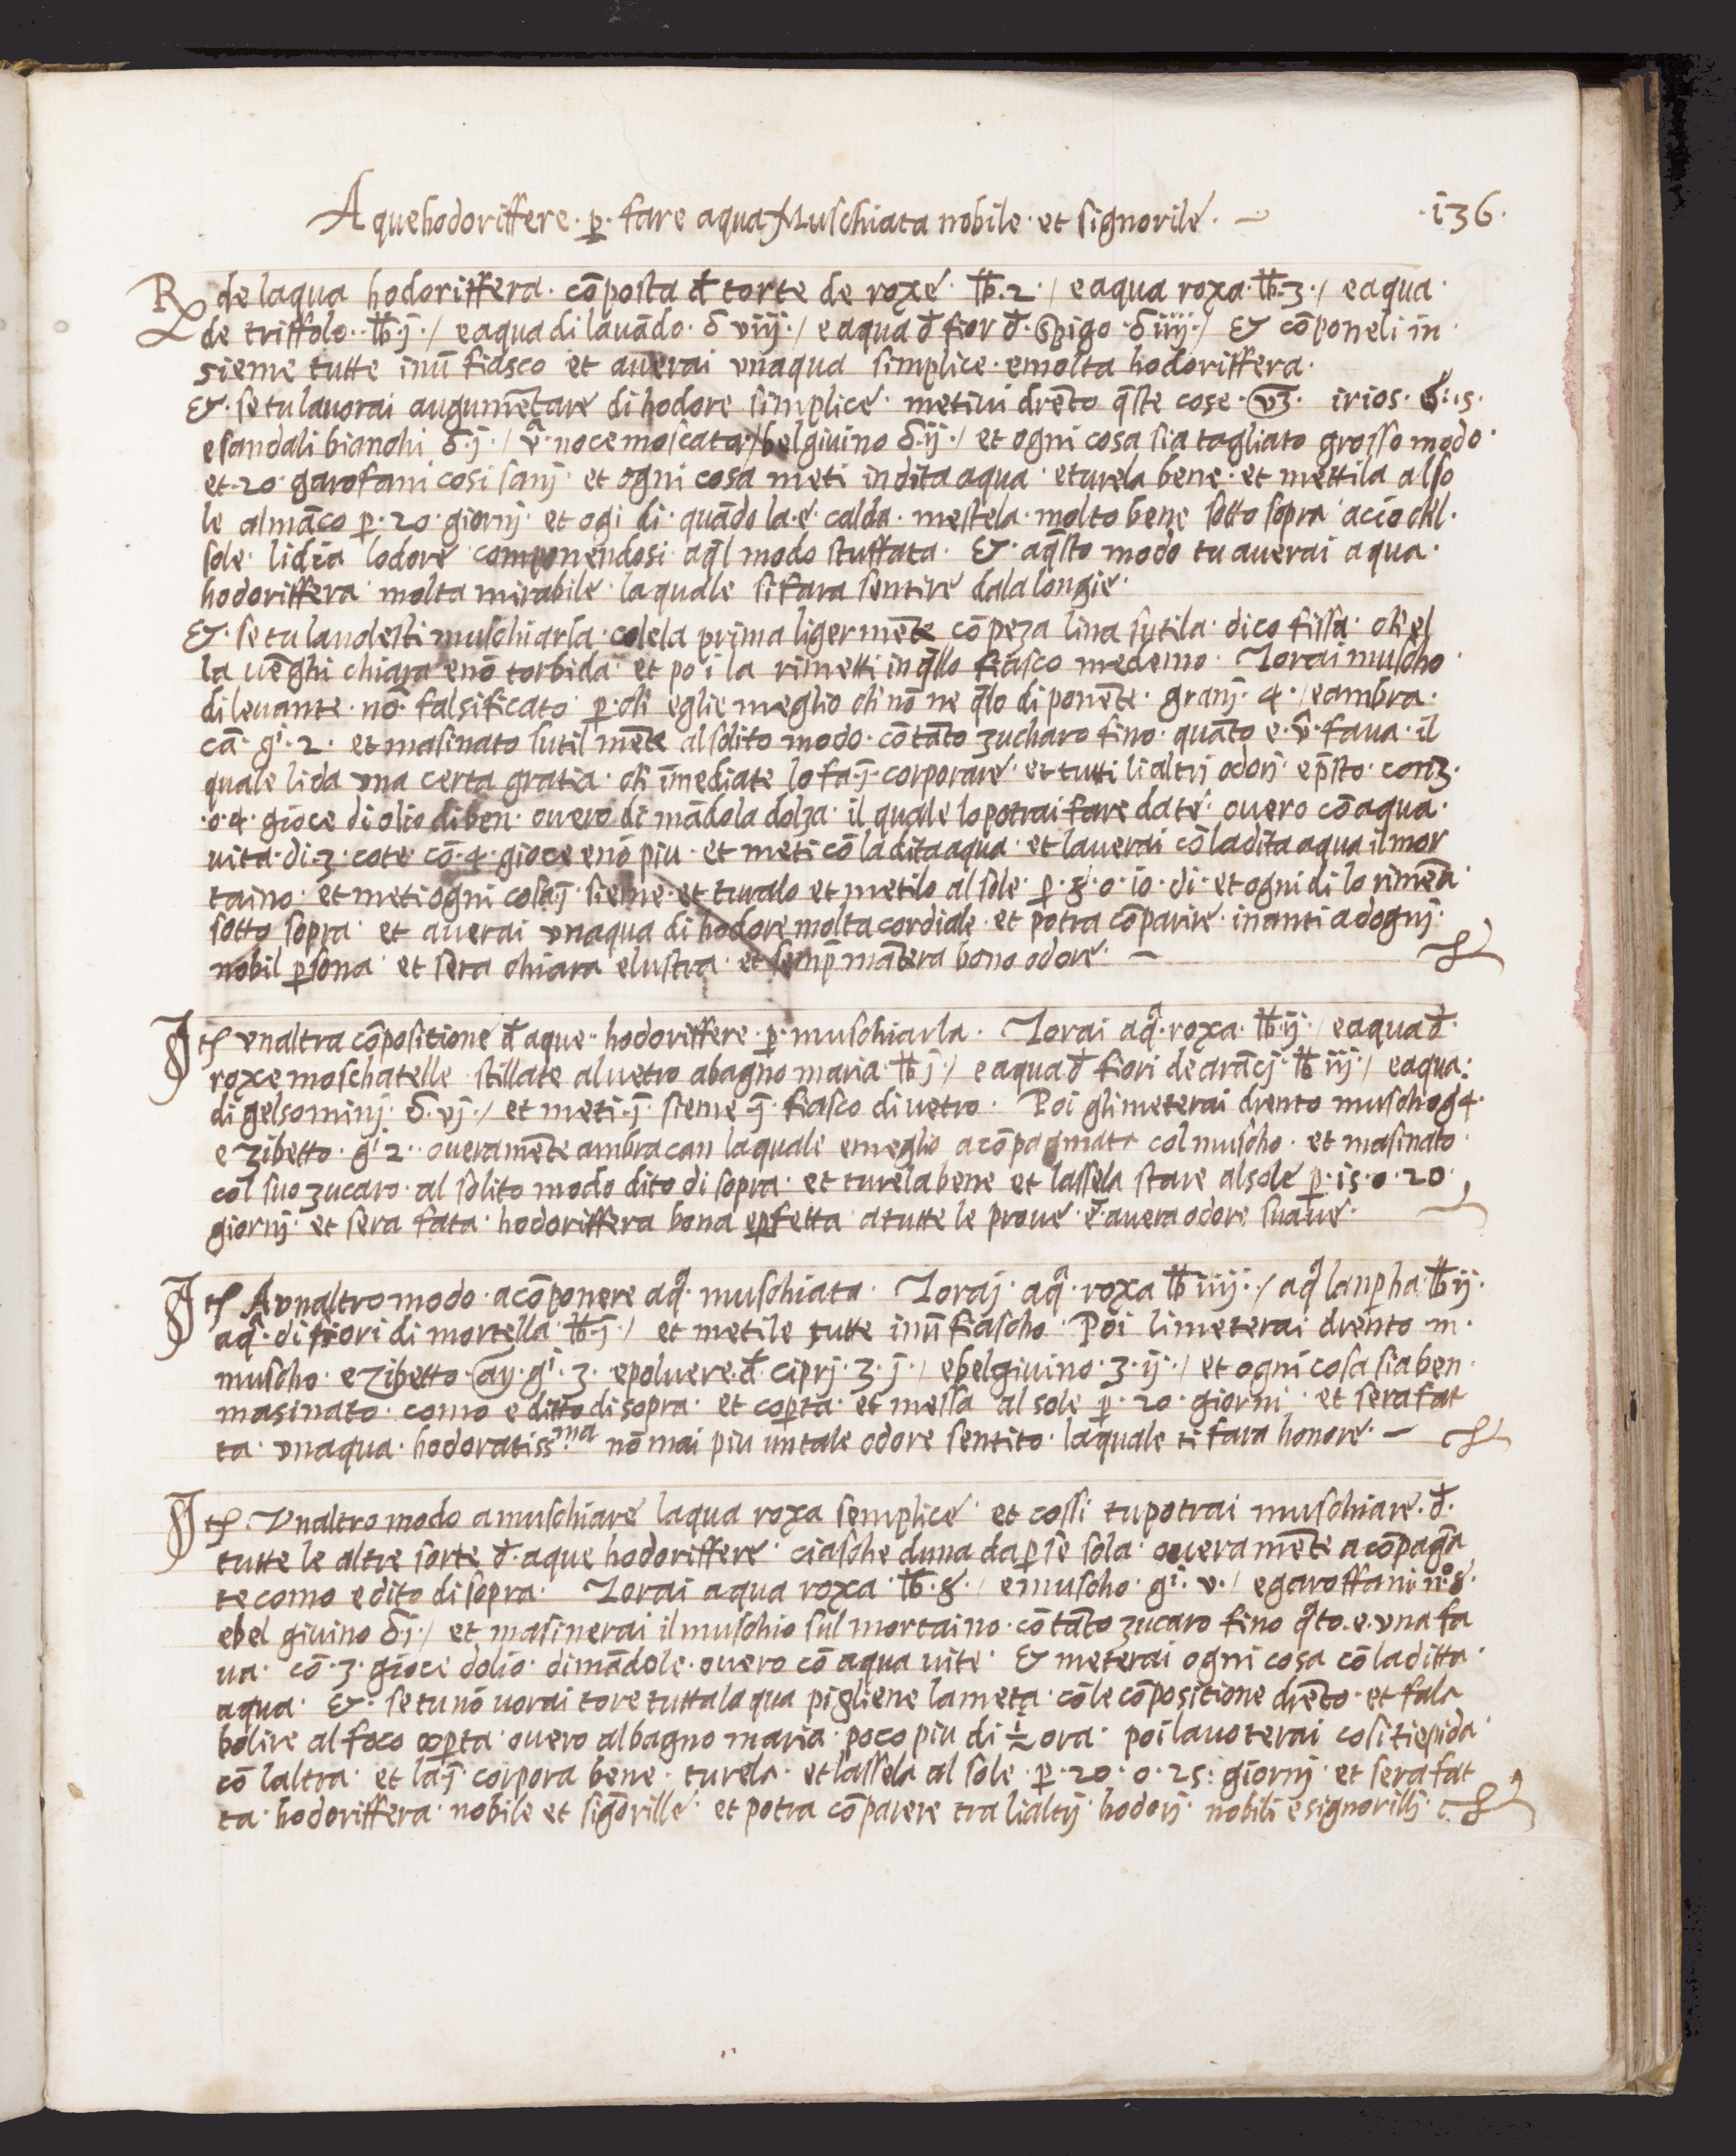 Aque hodoriffere · p̱ · fare aqua Muschiata nobile · et signorile · —
· 136 ·
℞ de laqua hodoriffera · cõposta đ torte de roxe · ℔ · 2 · / e aqua roxa · ℔ · 3 · / e aqua ·
de triffolo · · ℔ · j · / e aqua di lauãdo · δ viij · / e aqua đ fior đ · Spigo · δ iiij · / & cõponeli in ·
sieme tutte inũ fiasco et auerai vnaqua simplice · e molta hodoriffera ·
& · se tu la uorai augumẽtare di hodore simplice · metiui drẽto q̃ste cose · v3 · irios · δ · s ·
e sandali bianchi δ · j · / v̂ · noce moscata · / belgiuino δ · ij · / et ogni cosa sia tagliato grosso modo ·
et · 20 · garofani cosi sanj · et ogni cosa meti in dita aqua · e turela bene · et mettila al so
le almãco p̱ · 20 · giornj · et ogi di · quãdo la · e · calda · mestela · molto bene sotto sopra acio chl ·
sole · li dia lodore componendosi · a q̃l modo stuffata · & · a q̃sto modo tu auerai aqua ·
hodoriffera molta mirabile · la quale si fara sentire da la longie ·
& · se tu la uolesti muschiarla · colela prima ligermẽte cõ peza lina sutila · dico fissa · ch' el
la uẽghi chiara e nõ torbida · et poi la rimetti in q̃llo fiasco medemo · Torai muscho ·
di leuante · nõ · falsificato · p̱ · ch' eglie meglio ch' nõ ne q̃lo di ponẽte · granj · 4 · / e ambra ·
cã · gⁱ · 2 · et masinato sutilmẽte al solito modo · cõ tãto zucharo fino · quãto e · v̂ · faua · il
quale li da vna certa gratia · ch' ĩmediate lo fa · ȷ̃ · corporare · et tutti li altrj odorj · e p̃sto · con 3 ·
· o · 4 · gioce di olio di ben · ouero di mãdola dolza · il quale lo potrai fare da te · ouero cõ aqua ·
uita · di · 3 · cote · cõ · 4 · gioce e nõ piu · et meti cõ la dita aqua · et lauerai cõ la dita aqua il mor
taino · et meti ogni cosa ȷ̃ · sieme · et turalo et metilo al sole · p̱ · 8 · o · 10 · di · et ogni di lo rimẽa ·
sotto sopra · et auerai vnaqua di hodore molta cordiale · et potra cõparire · inanti ad ognj ·
nobil p̱sona · et sera chiara e lustra · et semp̃ mãtera bono odore · —
Itẽ vnaltra cõpositione đ aque · hodoriffere · p̱ · muschiarla · Torai aqᵃ · roxa · ℔ · ij · / e aqua đ ·
roxe moschatelle · stillate al uetro a bagno maria · ℔ j · / e aqua đ fiori de arãcj · ℔ iij · / e aqua :
di gelsominj · δ · vj · / et meti · ȷ̃ · sieme · ȷ̃ · fiasco di uetro · Poi gli meterai drento muscho g 4 ·
e zibetto · gⁱ 2 · · oueramẽte ambracan la quale e meglio acõpagnata col muscho · et masinato ·
col suo zucaro · al solito modo dito di sopra · et turela bene et lassela stare al sole p̱ · 15 · o · 20 ·
giornj · et sera fata · hodoriffera bona e p̱fetta a tutte le proue · e auera odore suaue ·
Itẽ A vnaltro modo · a cõponere aqᵃ · muschiata · Toraj · aqᵃ · roxa ℔ iiij · / aqᵃ lanpha ℔ ij ·
aqᵃ · di fiori di mortella · ℔ · j · / et metile tutte inũ fiascho · Poi li meterai drento m ·
muscho · e zibetto · ay · gⁱ · 3 · e poluere · đ · ciprj · 3 · j · / e belgiuino · 3 · ij · / et ogni cosa sia ben ·
masinato · como e ditto di sopra · et cop̱ta · et messa al sole p̱ · 20 · giorni · et sera fat
ta · vnaqua · hodoratissᵐᵃ nõ mai piu un tale odore sentito · la quale ti fara honore · —
Itẽ · Vnaltro modo a muschiare laqua roxa semplice · et cossi tu potrai muschiare · đ ·
tutte le altre sorte đ · aque hodoriffere · ciasche duna da p̱ se sola · oueramẽte acõpagna
te como e dito di sopra · Torai aqua roxa · ℔ · 8 · / e muscho · gⁱ · v · / e garoffani n° 8 ·
e bel giuino δ · j · / et masinerai il muschio sul mortaino · cõ tãto zucaro fino q̃to · e · vna fa
ua · cõ · 3 · gioce dolio · di mãdole · ouero cõ aqua uite · & meterai ogni cosa cõ la ditta ·
aqua · & · se tu nõ uorai tore tutta laqua pigliene la meta · cõ le cõpositione drẽto · et fala
bolire al foco cop̱ta · ouero al bagno maria · poco piu di ½ ora · poi la uoterai cosi tiepida ·
cõ laltra · et la ȷ̃ · corpora bene · turela · et lassela al sole · p̱ · 20 · o · 25 : giornj · et sera fat
ta · hodoriffera · nobile et sig̃orille · et potra cõparere tra li altrj hodorj · nobili e signorillj ·